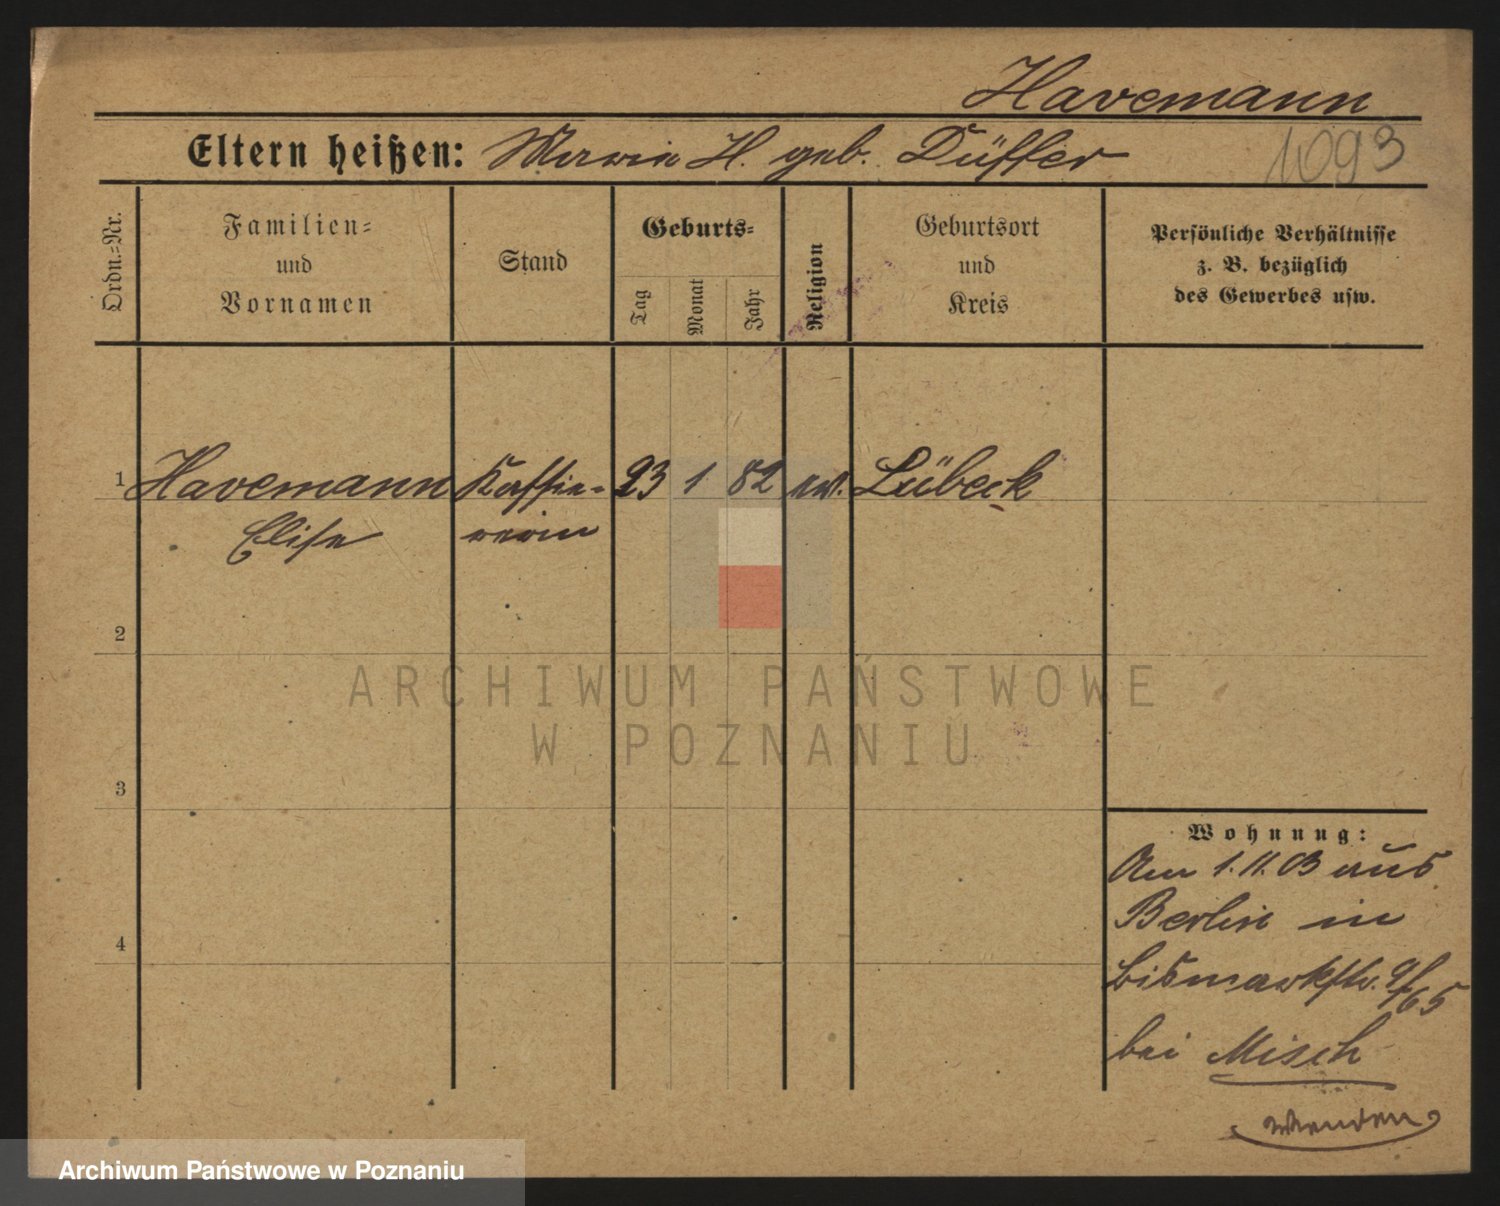 Havemann
Eltern heißen: Marie H. geb. Düffer
1093
Ordn.=Nr.
Familien=
und
Vornamen
Stand
Geburts=
Tag
Monat
Jahr
Religion
Geburtsort
und
Kreis
Persönliche Verhältnisse
z. B. bezüglich
des Gewerbes usw.
1 Havemann Kassie= 23 1 82 ev. Lübeck
Elise rerin
2
ARCHIWUM PAŃSTWOWE
W POZNANIU
3
Wohnung:
Am 1.11.03 aus
Berlin in
4
Bismarkstr. 9/65
bei Misch
Wenden
Archiwum Państwowe w Poznaniu